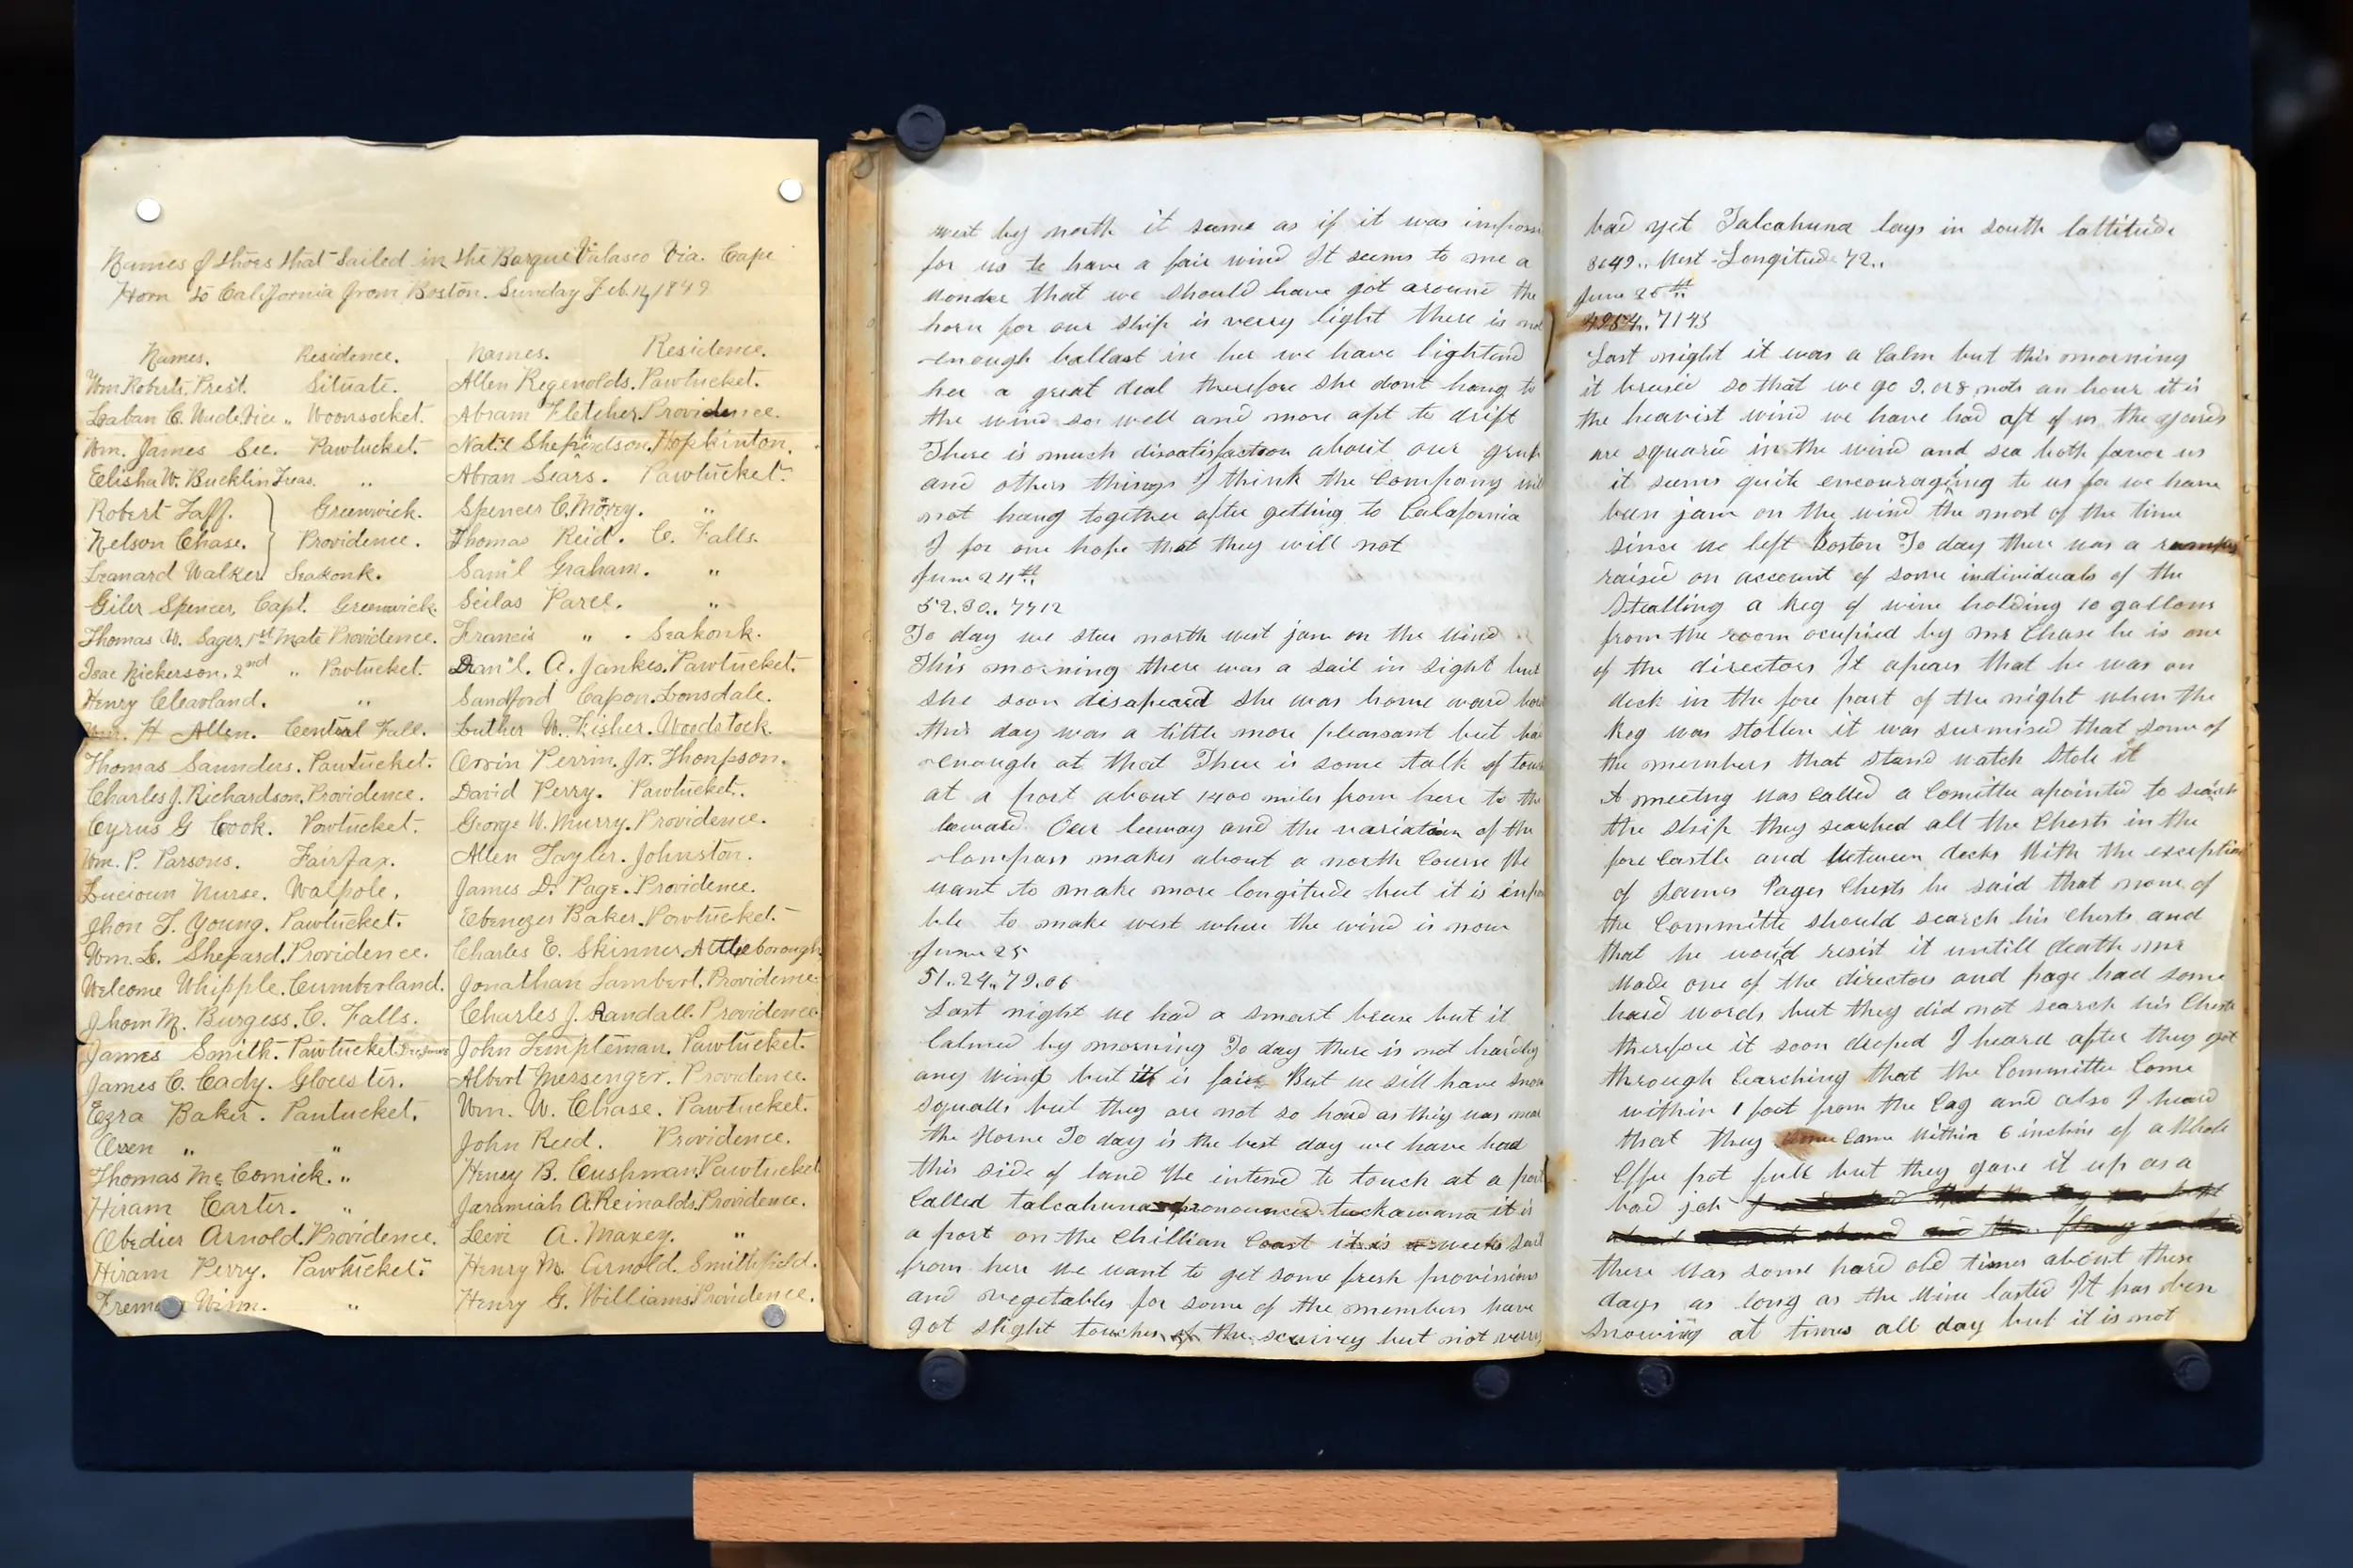 Names of thoes that Sailed in the Barque Valasco Via. Cape
Horn to California from Boston. Sunday Feb. 14, 1849
Names. Residence.
Wm Roberts. Prest. Situate.
Laban C. Wade. Vice „ Woonsocket.
Wm. James Sec. Pawtucket.
Elisha W. Bucklin Treas. „
Robert Taff. Greenwick.
Nelson Chase. Providence.
Leanard Walker Seakonk.
Giler Spencer, Capt. Greenwick.
Thomas W. Sager, 1st Mate Providence.
Isac Nickerson, 2nd „ Pawtucket.
Henry Cleavland. „
Wm. H Allen. Central Fall.
Thomas Saunders. Pawtucket.
Charles J. Richardson, Providence.
Cyrus G Cook. Pawtucket.
Wm. P. Parsons. Fairfax.
Lucioun Nurse. Walpole.
Jhon T. Young. Pawtucket.
Wm. L. Shepard. Providence.
Welcome Whipple. Cumberland.
Jhom M. Burgess. C. Falls.
James Smith. Pawtucket
James C. Cady. Glocester.
Ezra Baker. Pantucket.
Oren „ „
Thomas Mc Comick. „
Hiram Carter. „
Obedier Arnold. Providence.
Hiram Perry. Pawtucket.
Winn. „
Names. Residence.
Allen Regenolds. Pawtucket.
Abram Fletcher. Providence.
Nat'l Shepardson. Hopkinton.
Abran Sears. Pawtucket.
Spencer C. Morey. „
Thomas Reid. C. Falls.
Sam'l Graham. „
Seilas Parce. „
Francis „ . Seakonk.
Dan'l. A. Jankes. Pawtucket.
Sandford Capon. Lonsdale.
Luther W. Fisher. Woodstock.
Orrin Perrin, Jr. Thonpson.
David Perry. Pawtucket.
George W. Murry. Providence.
Allen Tayler. Johnston.
James D. Page. Providence.
Ebenezer Baker. Pawtucket.
Charles E. Skinner. Attleborough
Jonathan Lambert. Providence.
Charles J. Randall. Providence
John Templeman. Pawtucket.
Albert Messenger. Providence.
Wm. W. Chase. Pawtucket.
John Reed. Providence.
Henry B. Cushman. Pawtucket
Jaramiah A Reinalds. Providence.
Levi A. Maxey. „
Henry M. Arnold. Smithfield.
Henry G. Williams. Providence.
west by north it seems as if it was impossi
for us to have a fair wind It seems to me a
wonder that we should have got around the
horn for our ship is verry light there is not
enough ballast in her we have lightend
her a great deal therefore she dont hang to
the wind so well and more apt to drift
There is much disatisfaction about our grub
and others things I think the Company will
not hang together after getting to Calafornia
I for one hope that they will not
June 24th
52.30.. 7712
To day we stear north west jam on the wind
This morning there was a sail in sight but
she soon disapeard she was home ward bou
this day was a little more pleasant but ba
enough at that There is some talk of touc
at a port about 1400 miles from here to the
leeward. Our leeway and the variation of the
Compass makes about a north Course We
want to make more longitude but it is impo
ble to make west where the wind is now
June 25
51.24.. 79.06
Last night we had a smart brease but it
Calmed by morning To day there is not hardly
any wind but it is fair But we sill have snow
squalls but they are not so hard as they was near
the Horne To day is the best day we have had
this side of land We intend to touch at a port
Called talcahuna pronounced tuckawana it is
a port on the Chillian Coast it is a weeks sail
from here We want to get some fresh provisions
and vegetables for some of the members have
got slight touches of the scurvey but not verry
bad yet Talcahuna lays in south lattitude
3649.. West Longitude 72..
June 26th
4954.. 7143
Last night it was a Calm but this morning
it breased so that we go 7. or 8 nots an hour it is
the heavist wind we have had aft of us the yards
are squared in the wind and sea both favor us
it seems quite encouraging to us for we have
been jam on the wind the most of the time
since we left Boston To day there was a rumpus
raised on account of some individuals of the
Stealling a Keg of wine holding 10 gallons
from the room ocupied by mr Chase he is one
of the directors It apears that he was on
deck in the fore part of the night when the
Keg was stollen it was surmised that some of
the members that stand watch Stole it
A meetng was Called a Comittee apointed to search
the ship they searhed all the Chests in the
fore Castle and between decks With the exception
of James Pages Chests he said that none of
the Committe should search his Chests and
that he would resist it untill death mr
Wade one of the directors and page had some
hard words but they did not search his Chests
therefore it soon droped I heard after they got
through Cearching that the Committee Come
within 1 foot from the Cag and also I heard
that they Came Within 6 inches of a Whole
Coffee pot full but they gave it up as a
bad job
there was some hard old times about these
days as long as the Wine lasted It has been
snowing at times all day but it is not